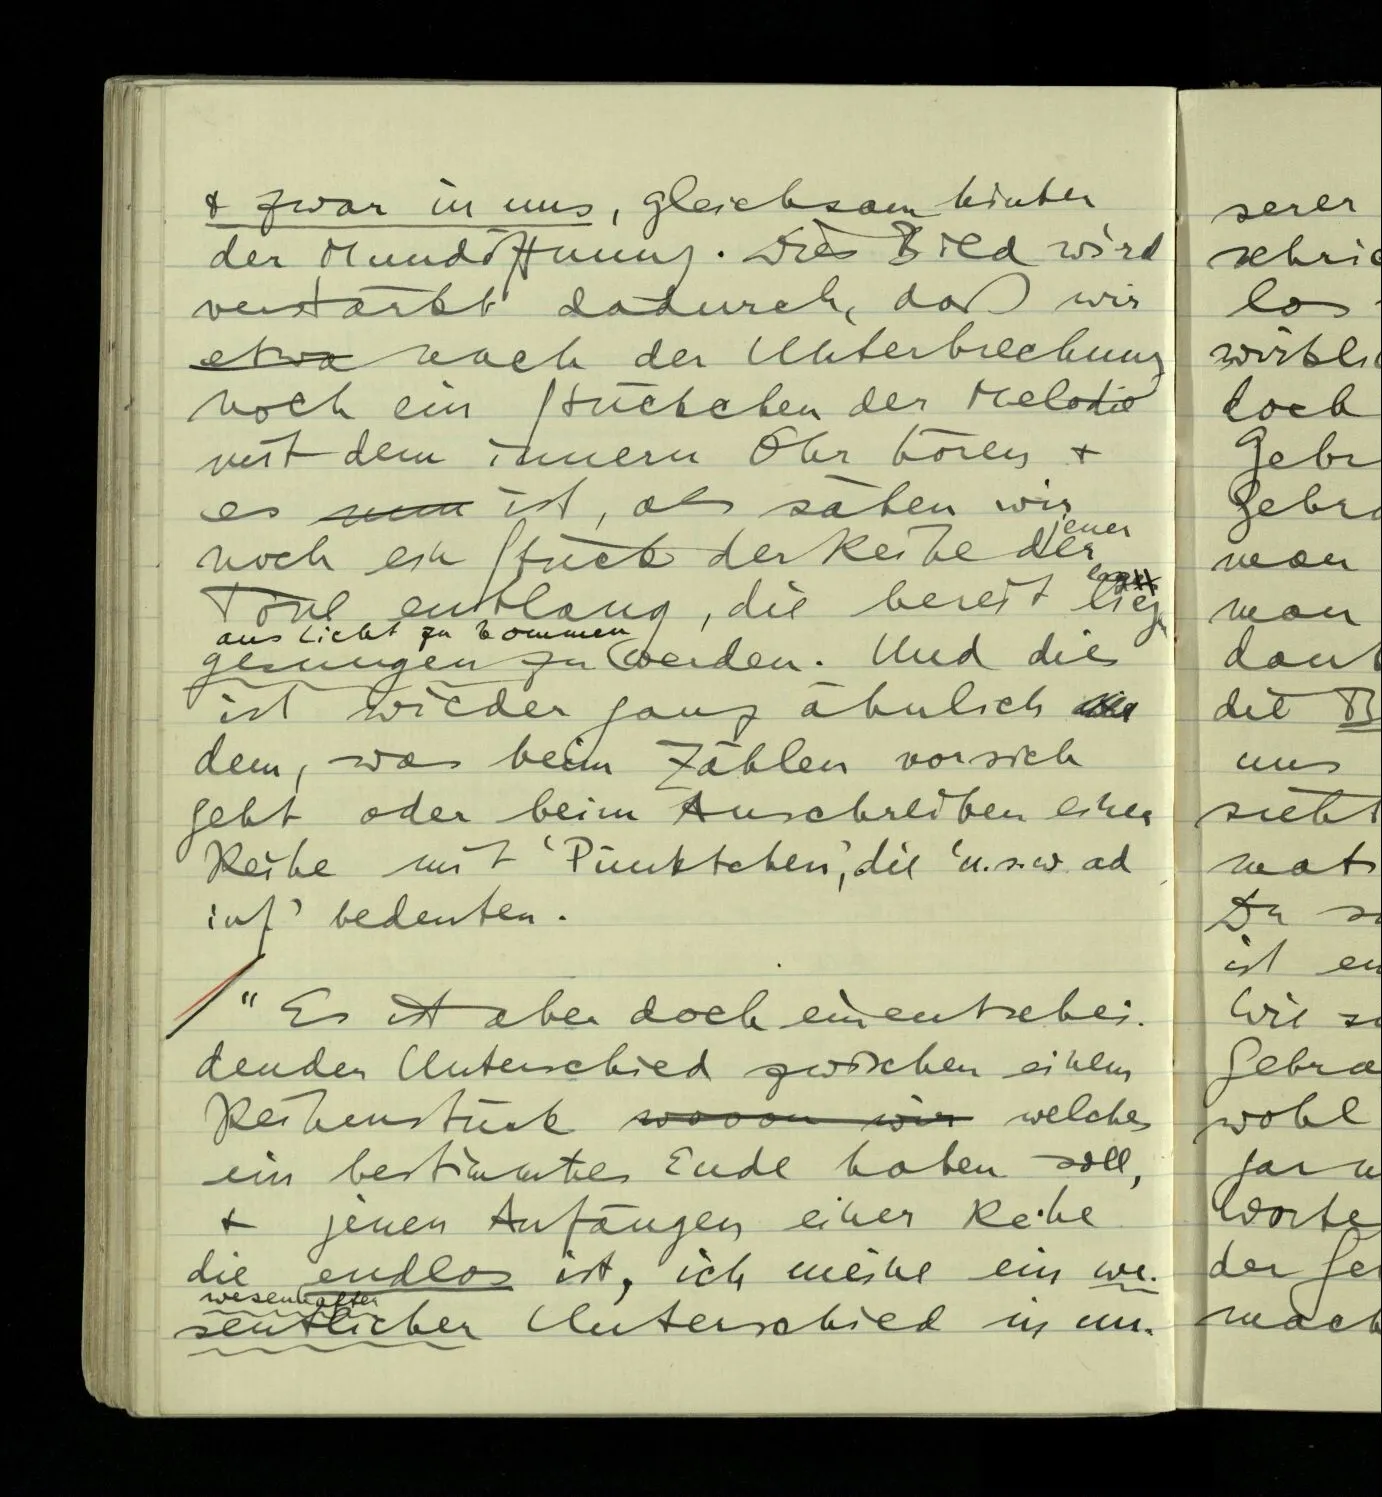 & zwar in uns, gleichsam hinter
der Mundöffnung. Dies Bild wird
verstärkt dadurch, daß wir
etwa nach der Unterbrechung
noch ein Stückchen der Melodie
mit dem innern Ohr hören &
es nun ist, als sähen wir
jener
noch ein Stück der Reihe der
Töne entlang, die bereit
ans Licht zu kommen
gesungen zu werden. Und dies
ist wieder ganz ähnlich
dem, was beim Zählen vorsich
geht oder beim Anschreiben einer
Reihe mit 'Pünktchen', die 'u.s.w. ad
inf' bedeuten.
/ " Es ist aber doch ein entschei-
dender Unterschied zwischen einem
Reihenstück wovon wir welches
ein bestimmtes Ende haben soll,
& jenen Anfängen einer Reihe
die endlos ist, ich meine ein we-
wesenhafter
sentlicher Unterschied in un-
serer
schri
los
wirkli
doch
Gebr
Gebra
man
man
dan
die B
uns
sieht
mat
Du s
ist en
Wie s
Gebra
wohl
gar n
Worte
der Ge
mach